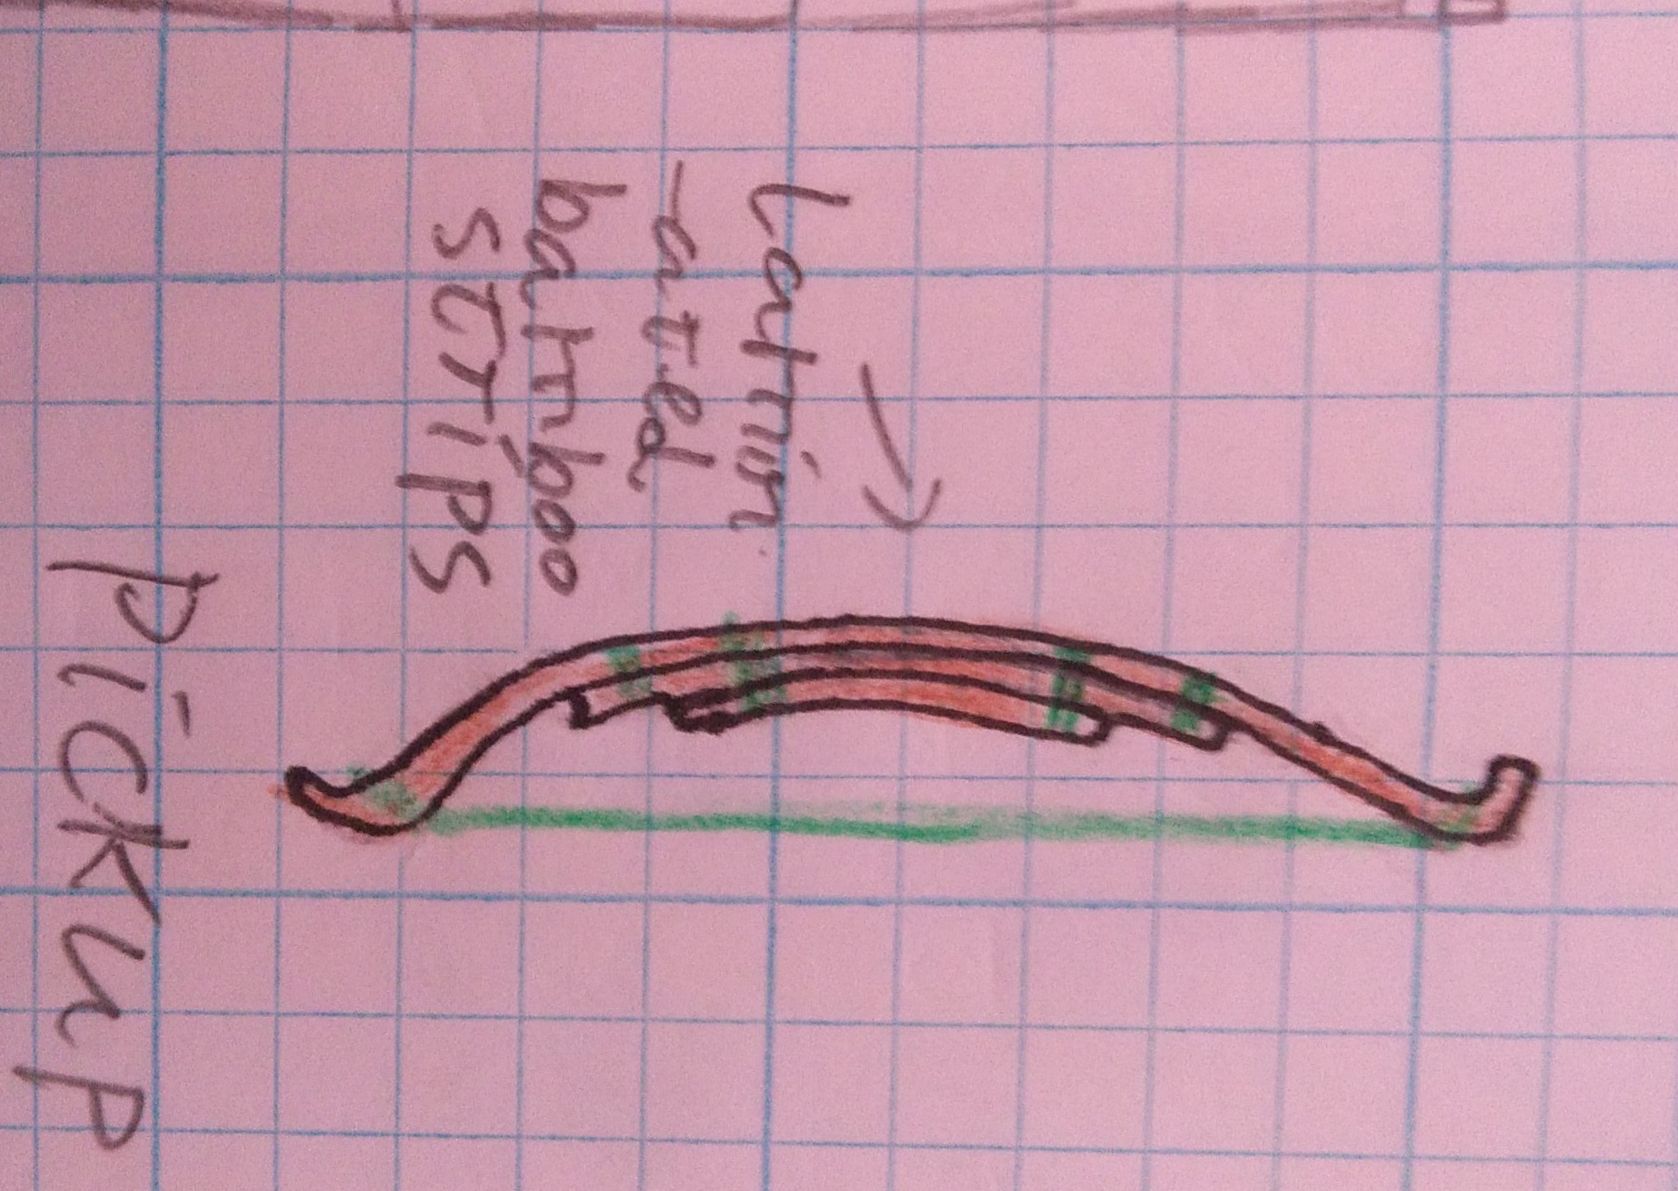 Lamin
-ated
bamboo
strips
pickup